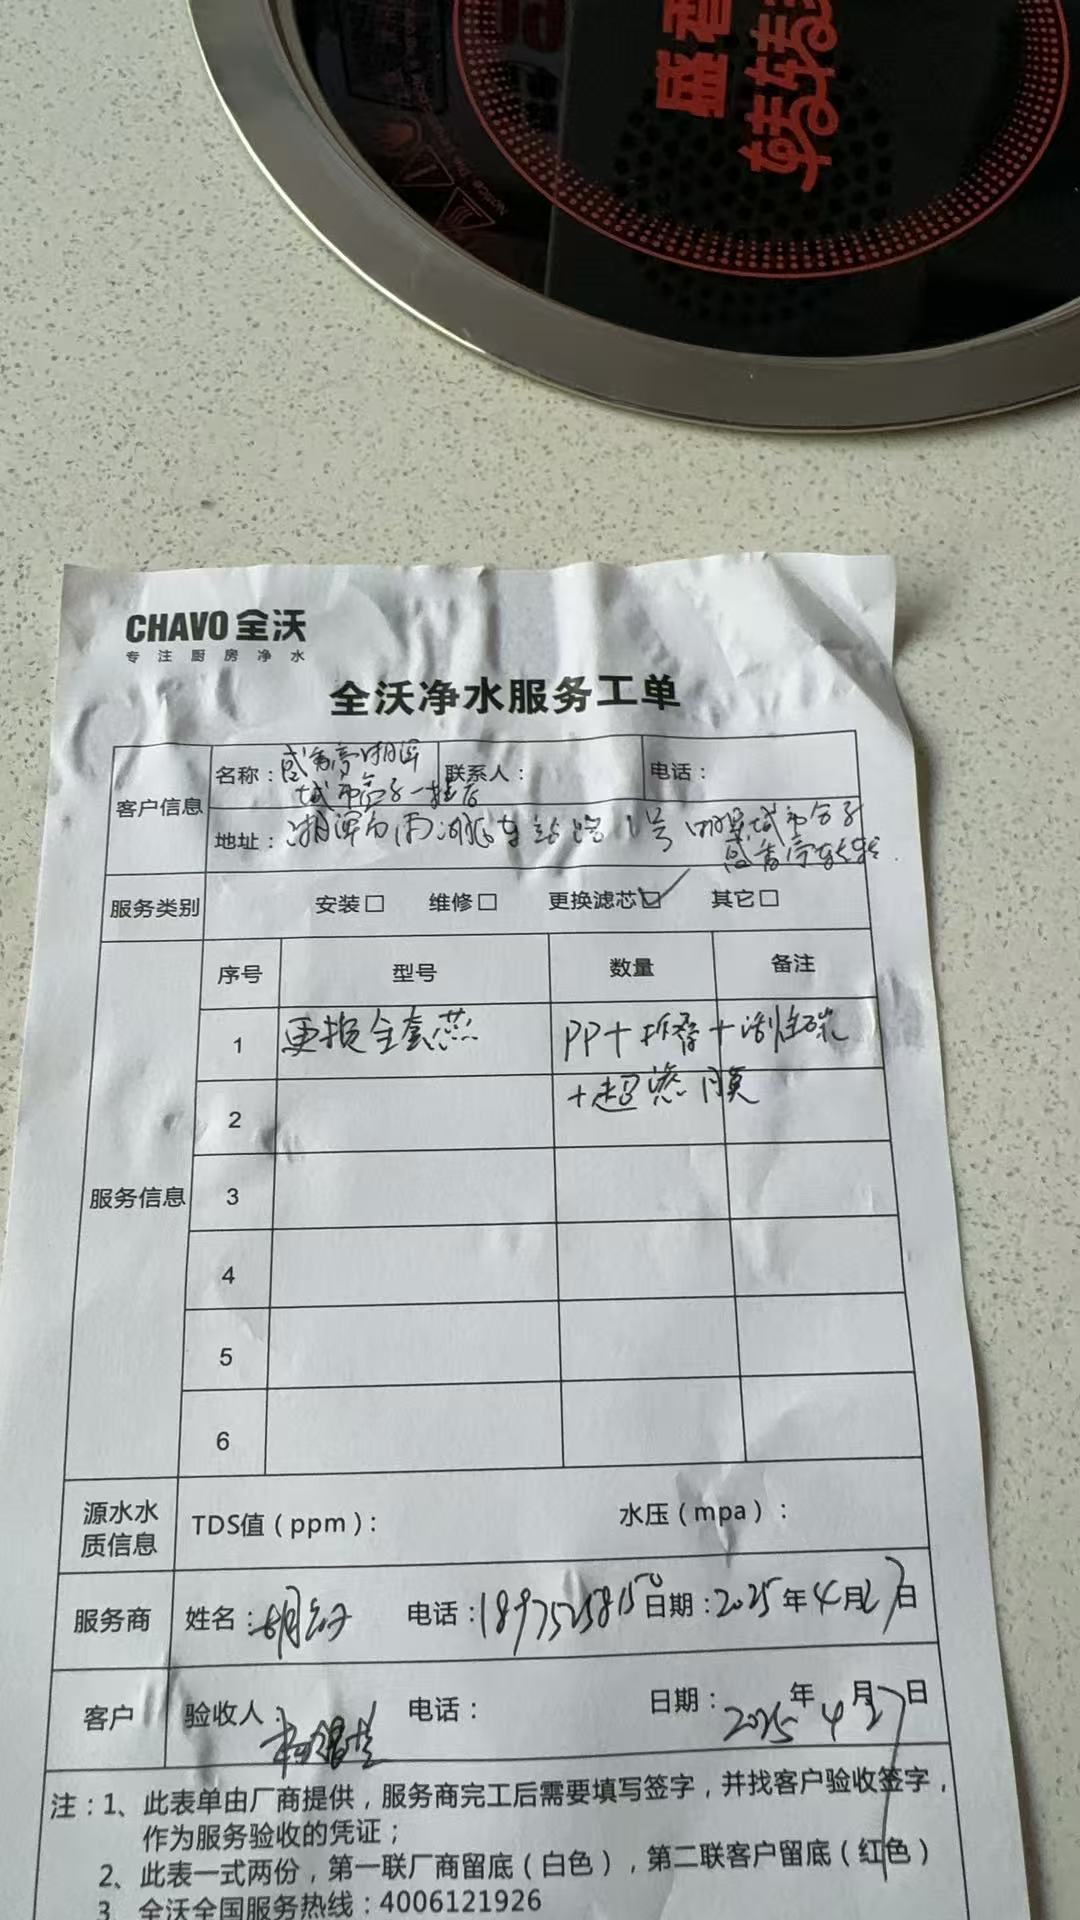 盛香
转转
CHAVO 全沃
专注厨房净水
全沃净水服务工单
客户信息 名称：盛香亭湘潭 联系人： 电话：
城市合子一楼店
地址：湘潭市 车站路1号 城市合子
盛香亭转转
服务类别 安装□ 维修□ 更换滤芯☑ 其它□
服务信息 序号 型号 数量 备注
1 更换全套芯 PP+折叠+活性碳
+超滤膜
2
3
4
5
6
源水水质信息 TDS值（ppm）： 水压（mpa）：
服务商 姓名：胡 电话：18975258150 日期：2025年4月27日
客户 验收人： 电话： 日期：2025年4月27日
注：1、此表单由厂商提供，服务商完工后需要填写签字，并找客户验收签字，
作为服务验收的凭证；
2、此表一式两份，第一联厂商留底（白色），第二联客户留底（红色）
3、全沃全国服务热线：4006121926